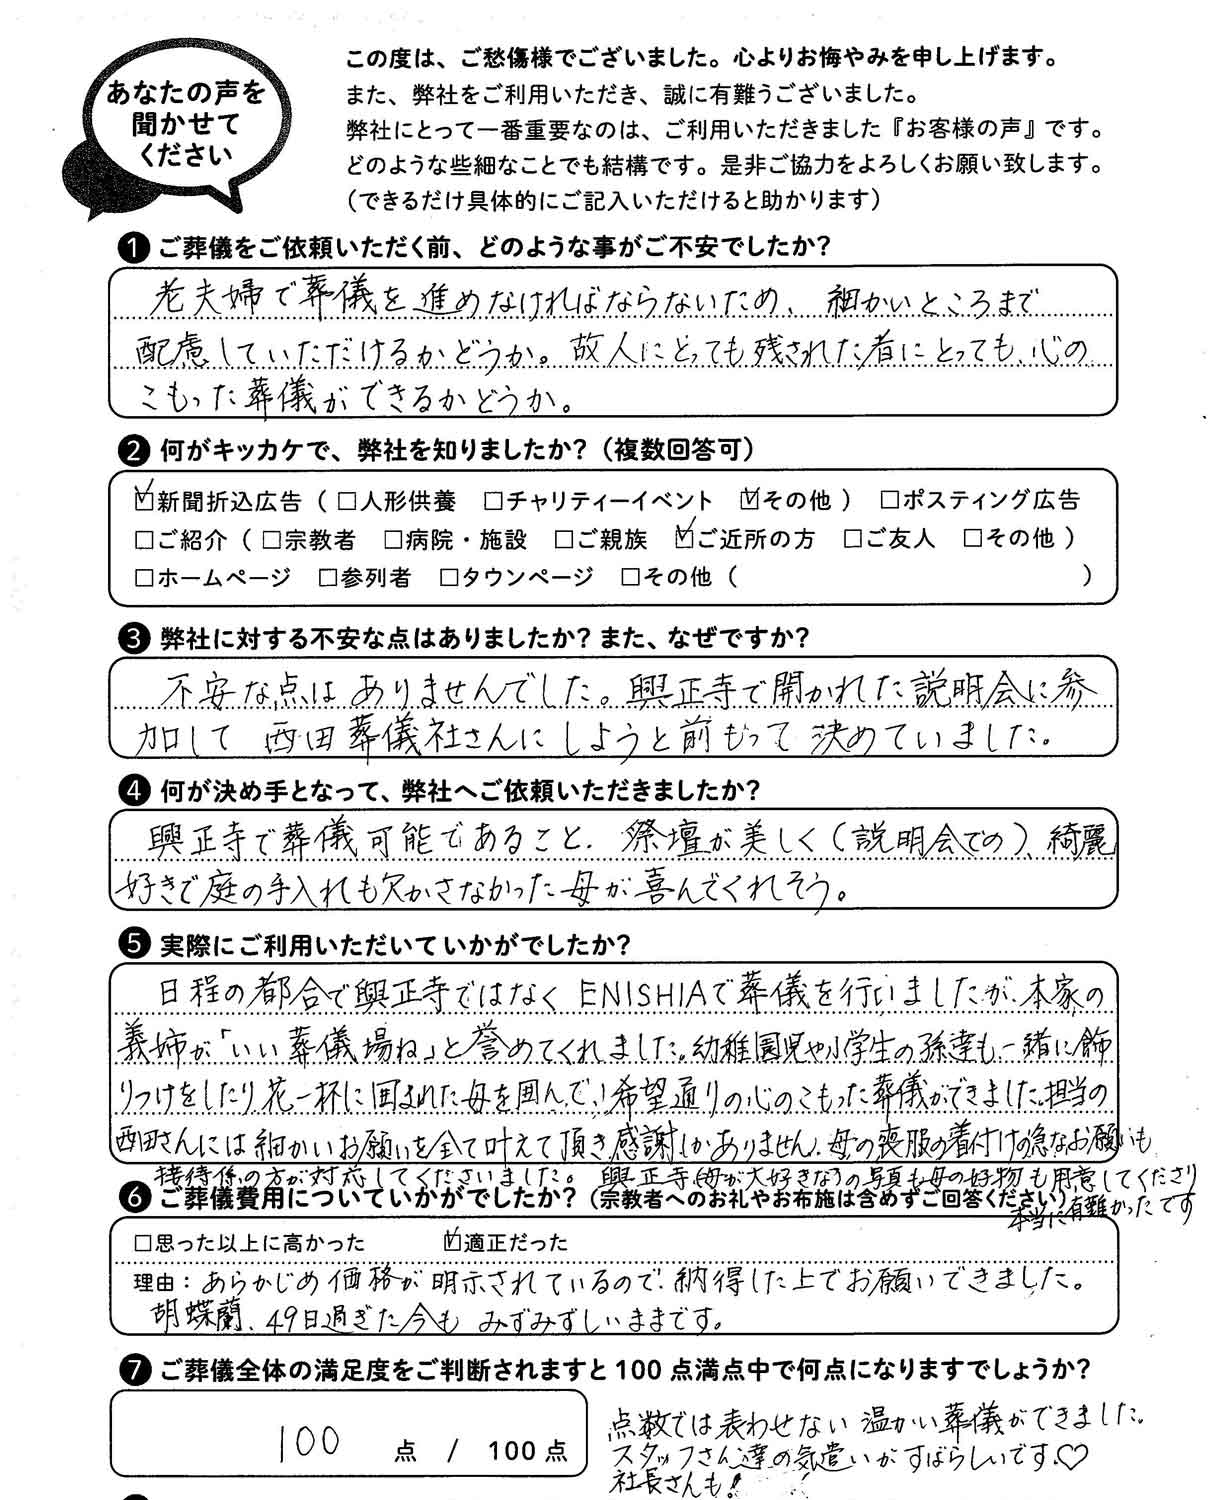 あなたの声を
聞かせて
ください
この度は、ご愁傷様でございました。心よりお悔やみを申し上げます。
また、弊社をご利用いただき、誠に有難うございました。
弊社にとって一番重要なのは、ご利用いただきました『お客様の声』です。
どのような些細なことでも結構です。是非ご協力をよろしくお願い致します。
（できるだけ具体的にご記入いただけると助かります）
1 ご葬儀をご依頼いただく前、どのような事がご不安でしたか？
老夫婦で葬儀を進めなければならないため、細かいところまで
配慮していただけるかどうか。故人にとっても残された者にとっても、心の
こもった葬儀ができるかどうか。
2 何がキッカケで、弊社を知りましたか？（複数回答可）
☑新聞折込広告（□人形供養 □チャリティーイベント ☑その他） □ポスティング広告
□ご紹介（□宗教者 □病院・施設 □ご親族 ☑ご近所の方 □ご友人 □その他）
□ホームページ □参列者 □タウンページ □その他（ ）
3 弊社に対する不安な点はありましたか？また、なぜですか？
不安な点はありませんでした。興正寺で開かれた説明会に参
加して西田葬儀社さんにしようと前もって決めていました。
4 何が決め手となって、弊社へご依頼いただきましたか？
興正寺で葬儀可能であること、祭壇が美しく（説明会での）、綺麗
好きで庭の手入れも欠かさなかった母が喜んでくれそう。
5 実際にご利用いただいていかがでしたか？
日程の都合で興正寺ではなくENISHIAで葬儀を行いましたが、本家の
義姉が「いい葬儀場ね」と誉めてくれました。幼稚園児や小学生の孫達も一緒に飾
りつけをしたり花一杯に囲まれた母を囲んで、希望通りの心のこもった葬儀ができました。担当の
西田さんには細かいお願いを全て叶えて頂き感謝しかありません。母の喪服の着付けの急なお願いも
接待係の方が対応してくださいました。興正寺（母が大好きな）の写真も母の好物も用意してくださり
本当に有難かったです
6 ご葬儀費用についていかがでしたか？（宗教者へのお礼やお布施は含めずご回答ください）
□思った以上に高かった ☑適正だった
理由：あらかじめ価格が明示されているので、納得した上でお願いできました。
胡蝶蘭、49日過ぎた今もみずみずしいままです。
7 ご葬儀全体の満足度をご判断されますと100点満点中で何点になりますでしょうか？
100 点 / 100点
点数では表わせない温かい葬儀ができました。
スタッフさん達の気遣いがすばらしいです♡
社長さんも！